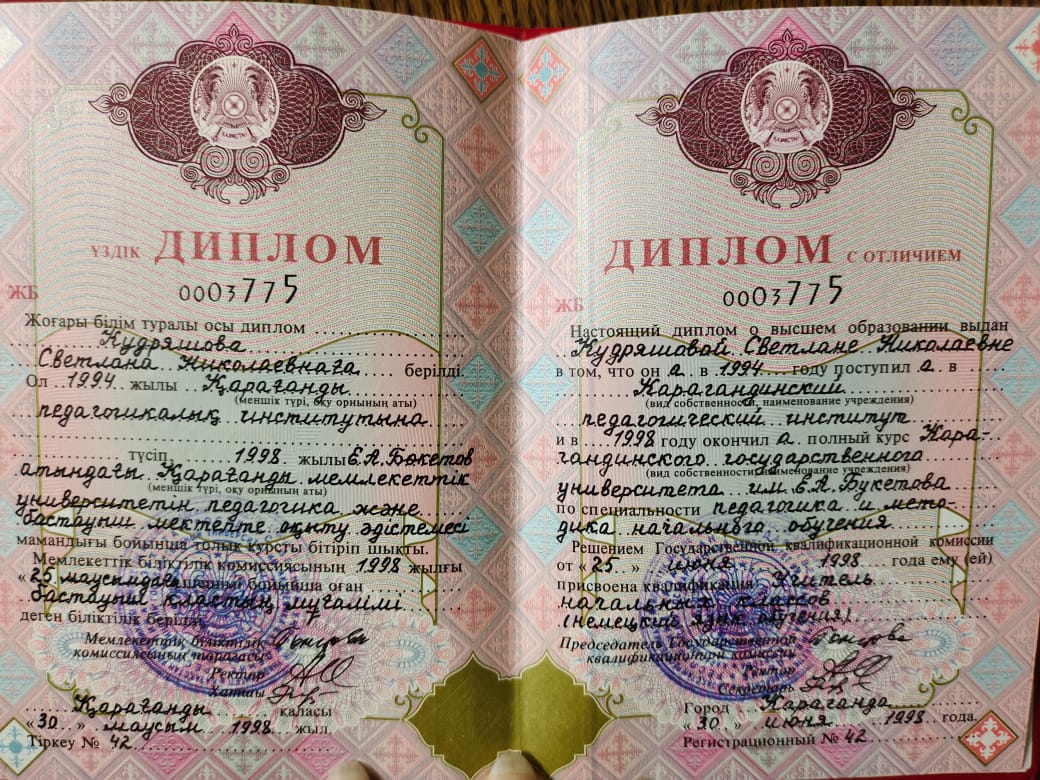 ҮЗДІК ДИПЛОМ
ЖБ 0003775
Жоғары білім туралы осы диплом
Кудряшова
Светлана Николаевнаға берілді.
Ол 1994 жылы Қарағанды
(меншік түрі, оқу орнының аты)
педагогикалық институтына
түсіп, 1998 жылы Е.А.Бөкетов
атындағы Қарағанды мемлекеттік
(меншік түрі, оқу орнының аты)
университетін педагогика және
бастауыш мектепте оқыту әдістемесі
мамандығы бойынша толық курсты бітіріп шықты.
Мемлекеттік біліктілік комиссиясының 1998 жылғы
«25 маусымдағы шешімі бойынша оған
бастауыш кластың мұғалімі
деген біліктілік берілді.
Мемлекеттік біліктілік
комиссиясының төрағасы
Ректор
Хатшы
Қарағанды қаласы
«30» маусым 1998 жыл.
Тіркеу № 42
ДИПЛОМ С ОТЛИЧИЕМ
ЖБ 0003775
Настоящий диплом о высшем образовании выдан
Кудряшовой Светлане Николаевне
в том, что он а в 1994 году поступил а в
Карагандинский
(вид собственности, наименование учреждения)
педагогический институт
и в 1998 году окончил а полный курс Кара-
гандинского государственного
(вид собственности, наименование учреждения)
университета им. Е.А.Букетова
по специальности педагогика и мето-
дика начального обучения
Решением Государственной квалификационной комиссии
от «25» июня 1998 года ему (ей)
присвоена квалификация Учитель
начальных классов
(немецкий язык обучения)
Председатель Государственной
квалификационной комиссии
Ректор
Секретарь
Город Караганда
«30» июня 1998 года.
Регистрационный № 42